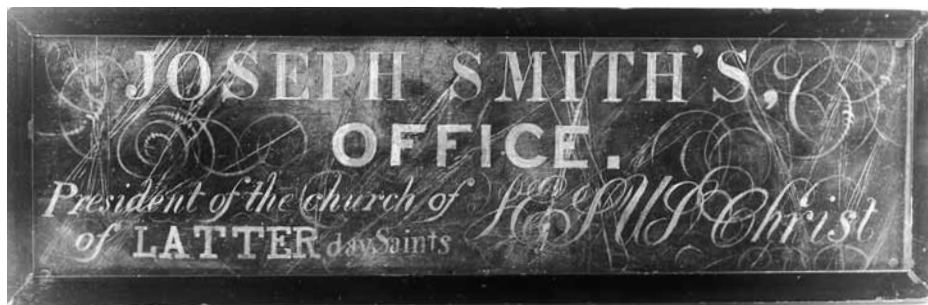 JOSEPH SMITH'S,
OFFICE.
President of the church of JESUS Christ
of LATTER day Saints